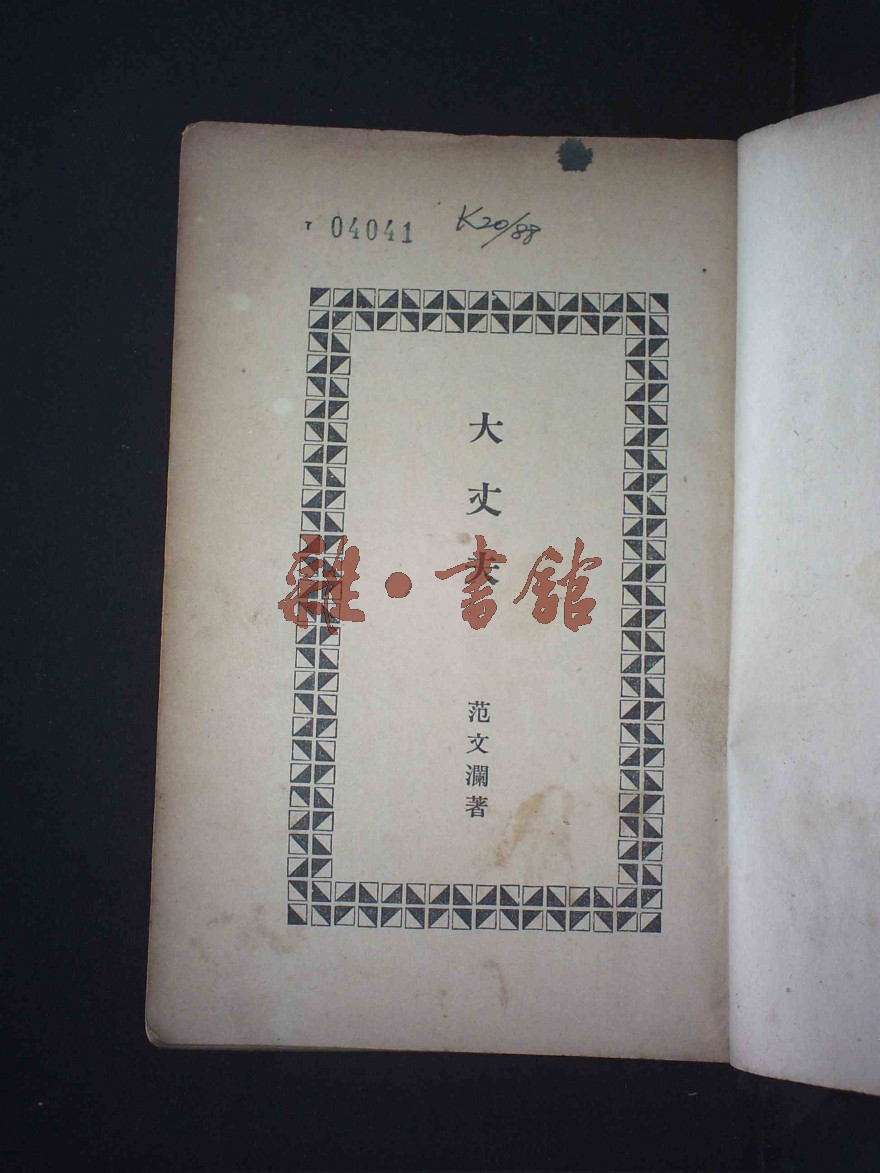 04041 K20/88
大丈夫
雜·書館
范文瀾著